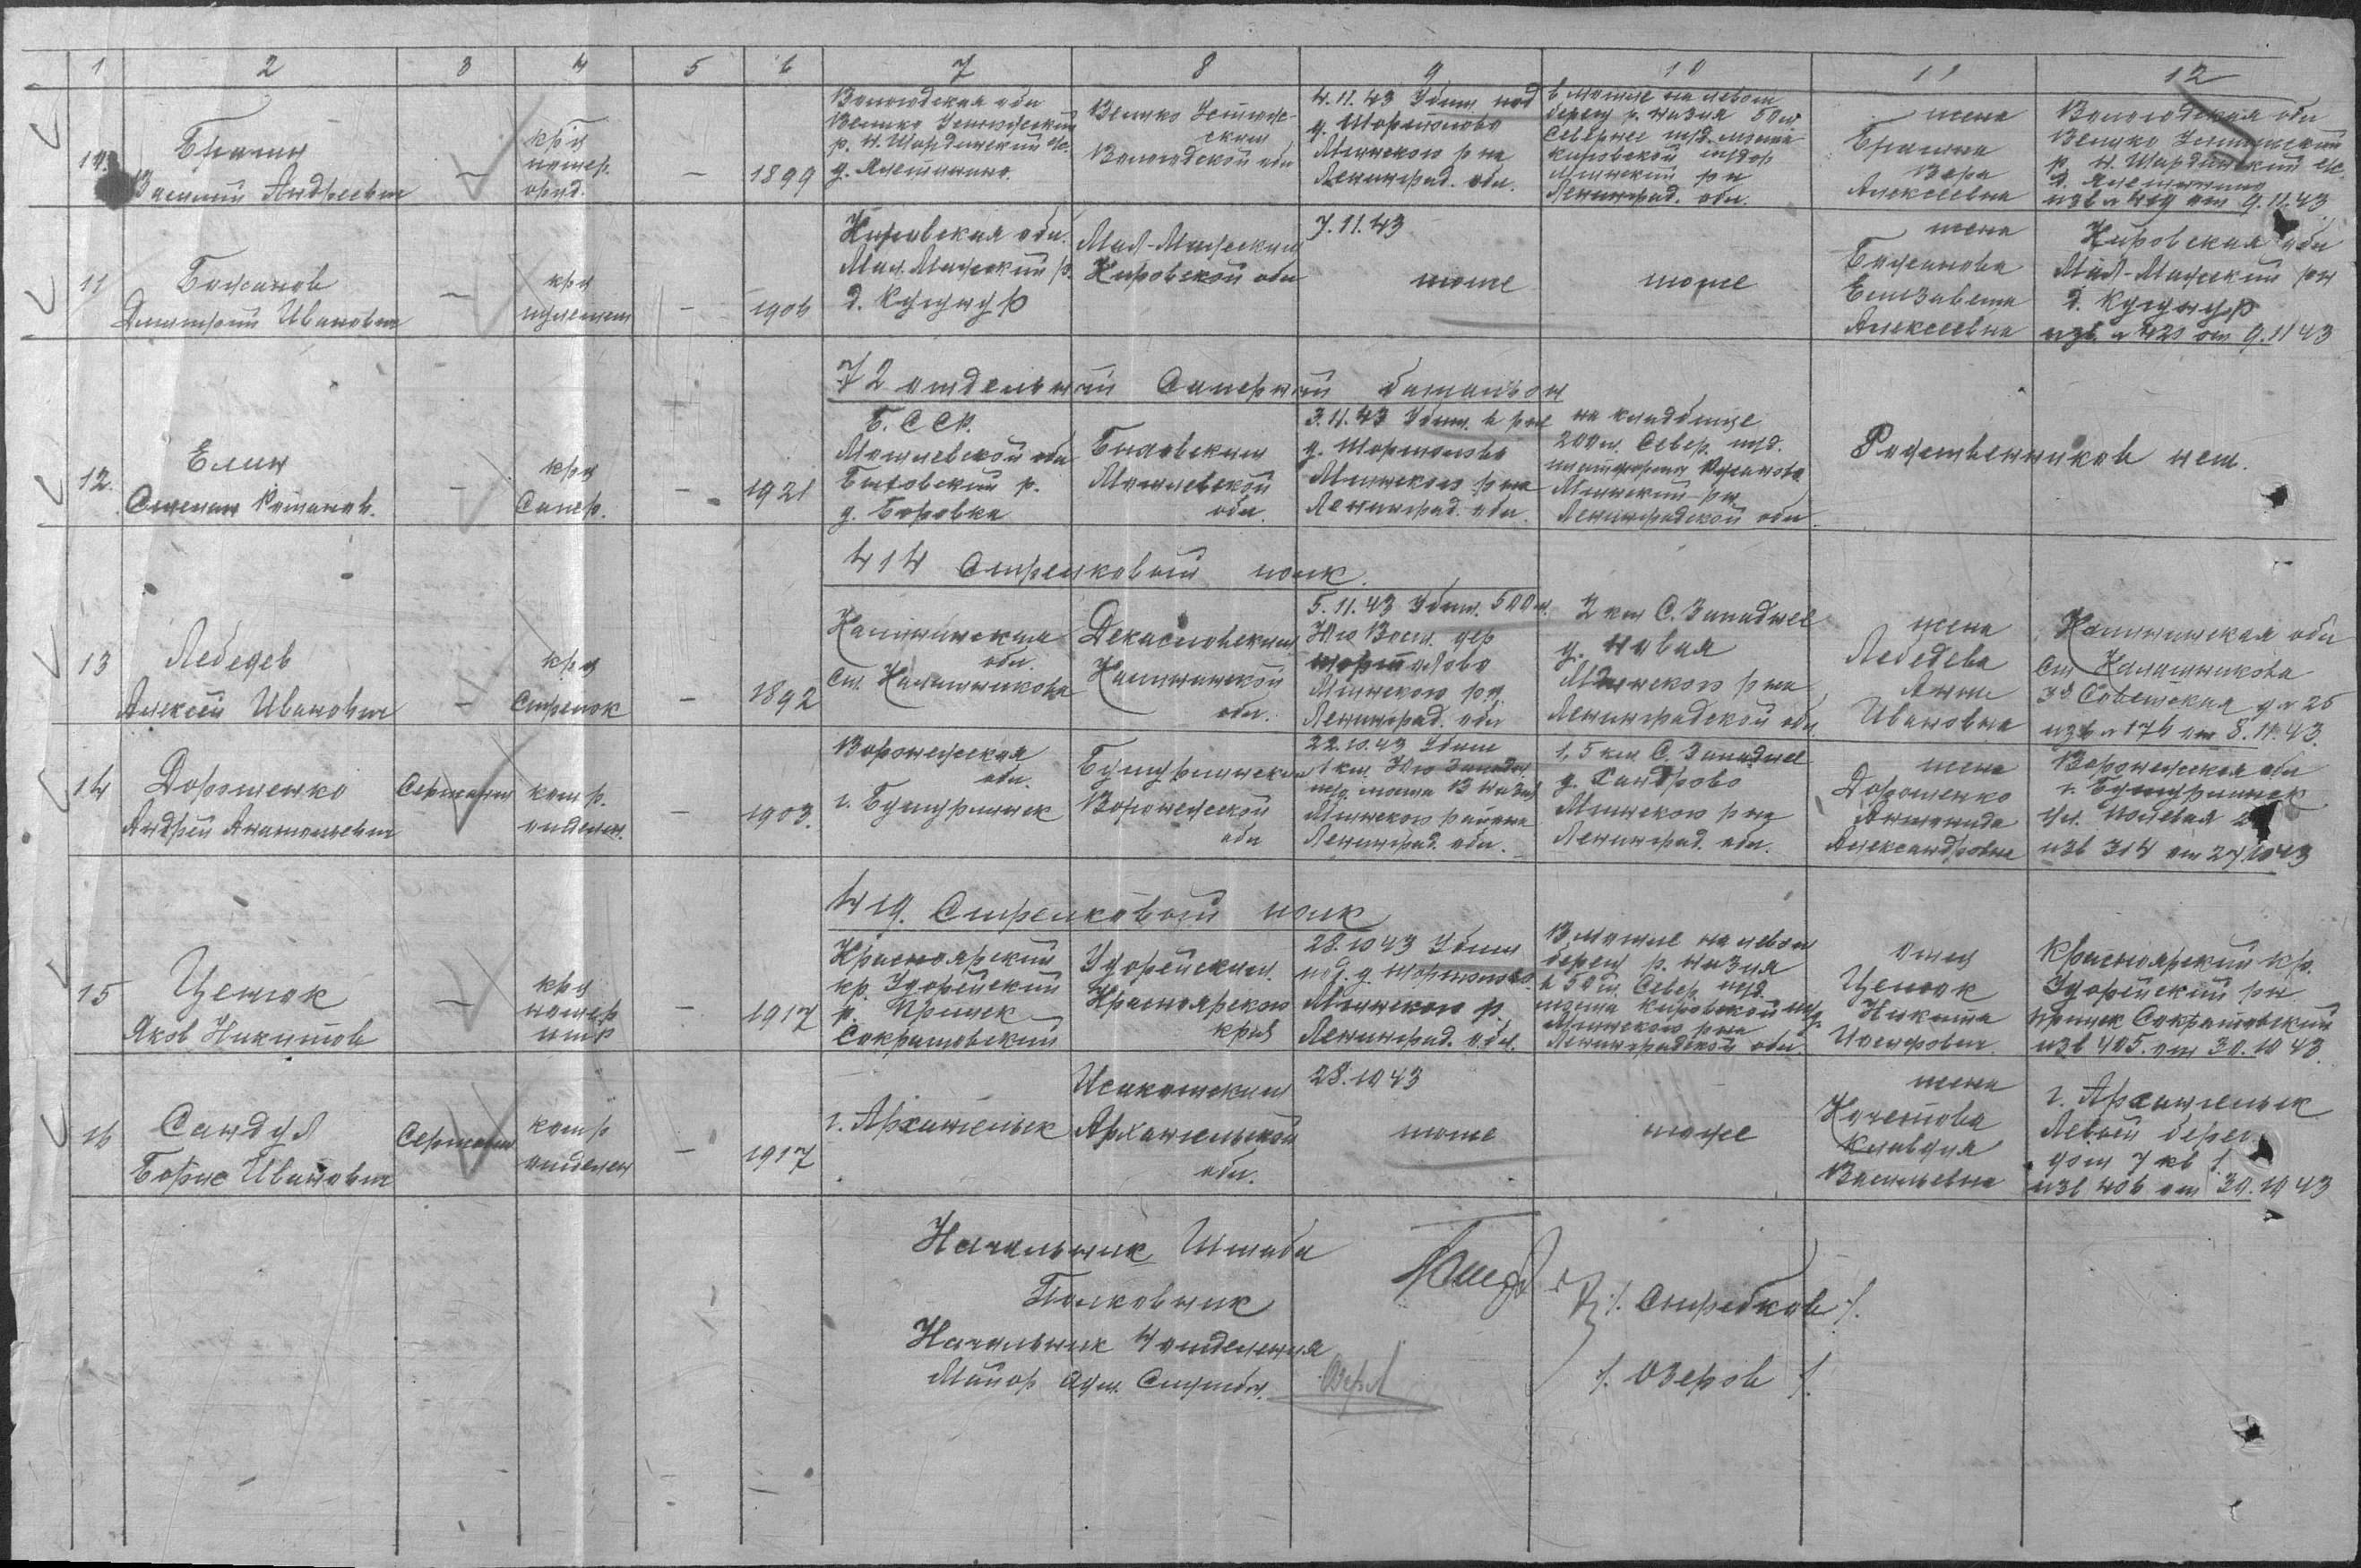 1 2 3 4 5 6 7 8 9 10 11 12
10.
Василий Андреевич
—
кр-ц
—
1899
Вологодская обл
Велико Устюгский
р. Н. Шардинский с/с.
д. Алешкино
Велико Устюг-
ским
Вологодской обл
4.11.43 Убит под
д. Шортолово
Мгинского р на
Ленинград. обл.
в могиле на левом
берегу р. Назия 50 м
Севернее ж/д. моста
Кировской ж/дор
Мгинский р н
Ленинград. обл.
жена
Вера
Алексеевна
Вологодская обл
Велико Устюгский
р. Н. Шардинский с/с.
д. Алешкино
изв н 419 от 9.11.43
11
Божанов
Дмитрий Иванович
—
кр-ц
—
1906
Кировская обл.
Мал. Мажский р.
д.
Мал-Мажским
Кировской обл
7.11.43
тоже
тоже
жена
Божанова
Елизавета
Алексеевна
Кировская обл
Мал-Мажский рн
д.
изв. н 420 от 9.11 43
72 отдельный Саперный батальон
12.
Елин
Степан Романов.
—
кр-ц
Сапер.
—
1921
Б. ССР.
Могилевской обл
Быховский р.
д. Боровка
Быховским
Могилевской
обл.
3.11.43 Убит. в р-не
д. Шортолово
Мгинского р на
Ленинград. обл.
на кладбище
200 м. Север. ж/д.
платформы Жихарево
Мгинский рн
Ленинградской обл.
Родственников нет.
414 Стрелковый полк.
13
Лебедев
Алексей Иванович
—
кр-ц
Стрелок
—
1892
Калининская
обл.
Ст. Калашниково
Калининской
обл.
5.11.43 Убит. 500 м.
Юго Вост. дер
Шортолово
Мгинского рн.
Ленинград. обл
2 км С. Западнее
д. Новая
Мгинского р на
Ленинградской обл
жена
Лебедева
Анна
Ивановна
Калининская обл
Ст Калашниково
Советская д н 25
изв н 176 от 8.11.43.
14
Дорошенко
Андрей Анатольевич
Сержант
ком р.
отделен.
—
1903.
Воронежская
обл.
г. Бутурлинск
Бутурлинским
Воронежской
обл
22.10.43 Убит
1 км. Юго Западн.
Мгинского района
Ленинград. обл.
1,5 км С. Западнее
д. Гандрово
Мгинского р на
Ленинград. обл.
жена
Дорошенко
Антонида
Александровна
Воронежская обл
г. Бутурлинск
Ул. Полевая
изв 314 от 27 10 43
419. Стрелковый полк
15
Цепок
Яков Никитов
—
кр-ц
—
1917
Красноярский
кр. Удерейский
р. Прииск
Сократовский
Удерейским.
Красноярского
края
28.10 43 Убит
под. д. Шортолово.
Мгинского р.
Ленинград. обл.
В могиле на левом
берегу р. Назия
в 50 м. Север. ж/д
моста Кировской ж/д.
Мгинского рна
Ленинградской обл.
отец
Цепок
Никита
Иосифович.
Красноярский кр.
Удерейский рн
прииск Сократовский
изв 405. от 30.10 43.
16
Сандул
Борис Иванович
Сержант
ком р
отделен
—
1917
г. Архангельск
Исакогским
Архангельской
обл.
28.10 43
тоже
тоже
жена
Клавдия
Васильевна
г. Архангельск
Левый берег.
дом 7 кв 1.
изв 406 от 30.10 43
Начальник Штаба
Полковник
/. Скребков /.
Начальник 4 отделения
Майор адм. Службы.
/. Озеров /.